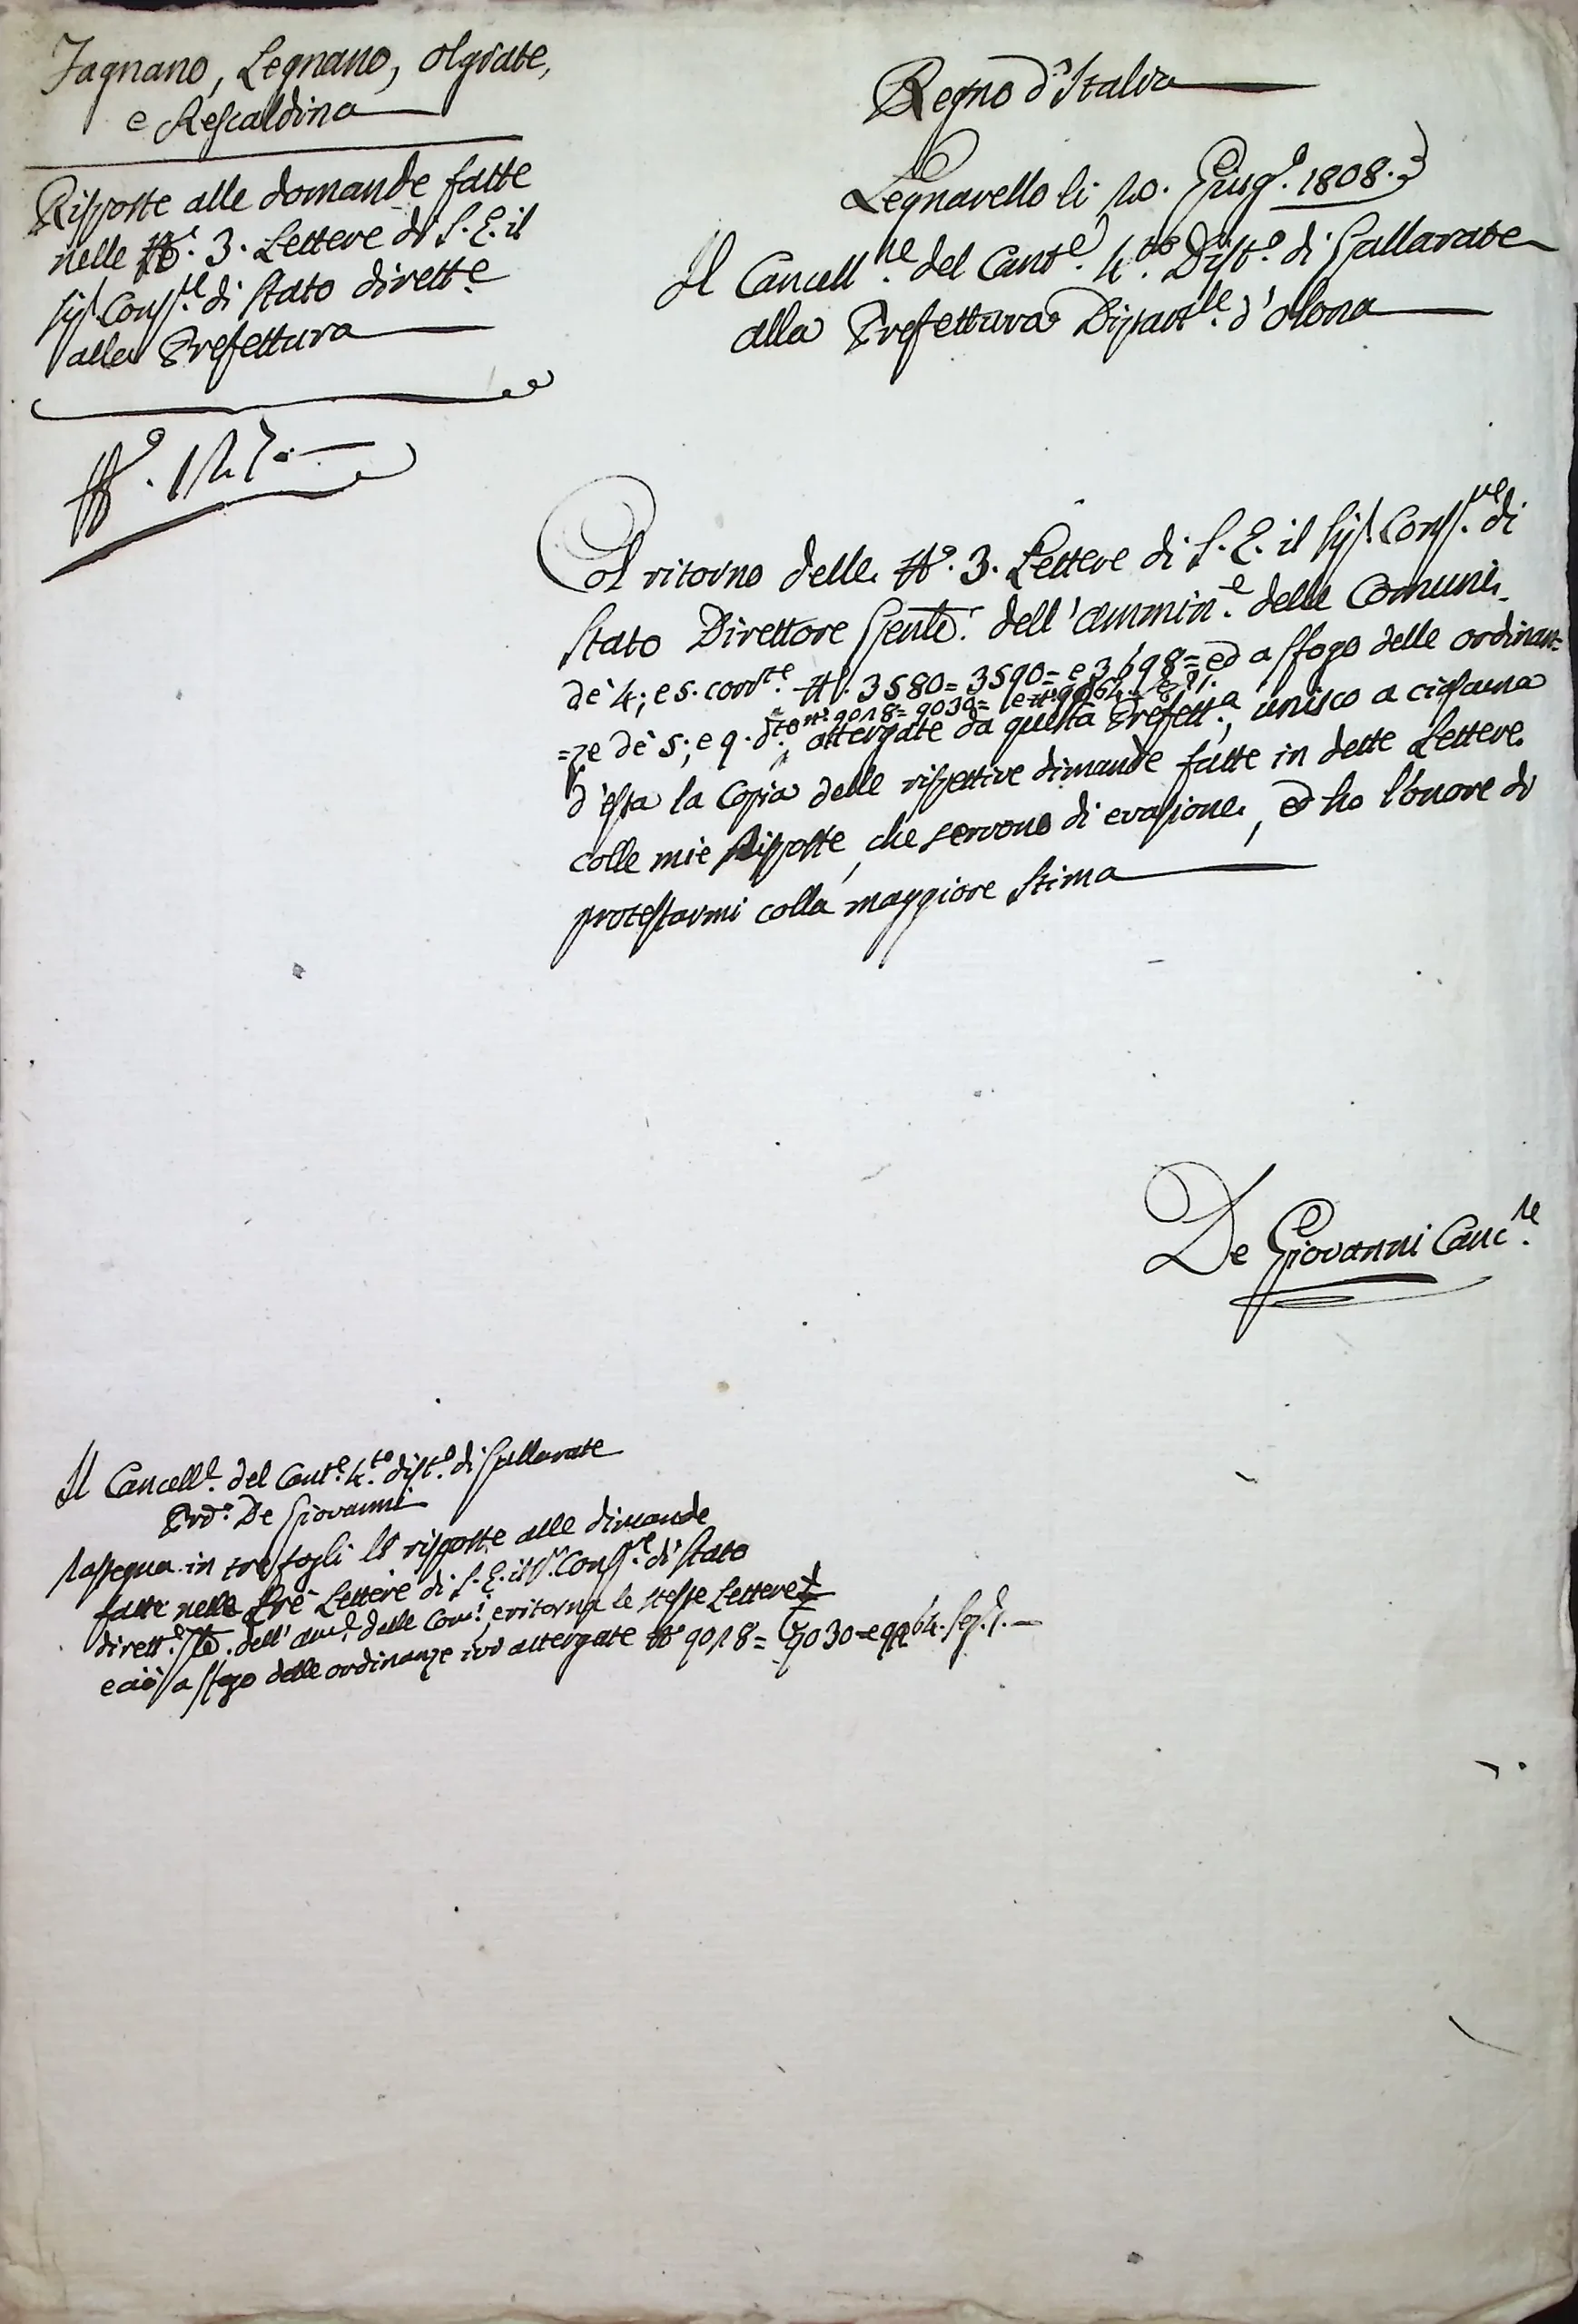 Fagnano, Legnano, Olgiate,
e Rescaldina
Risposte alle domande fatte
nelle N.° 3. Lettere di S. E. il
Sig.r Cons.re di Stato dirett.e
alla Prefettura
N.° 127.
Regno d'Italia
Legnarello li 20. Giug.° 1808.
Il Cancell.re del Cant.e 4.to Dist.° di Gallarate
alla Prefettura Dipart.le d'Olona
Col ritorno delle N.° 3. Lettere di S. E. il Sig.r Cons.re di
Stato Direttore Gen.le dell'ammin.e delle Comuni
de' 4; e 5. corr.te N.i 3580= 3590= e 3698= ed a sfogo delle ordinan=
n.i 9018= 9030= e 9064. Sez. I.
=ze de' 5; e 9. d.to, attergate da questa Prefett.a, unisco a ciascuna
d'essa la Copia delle rispettive dimande fatte in dette Lettere
colle mie Risposte, che servono di evasione, ed ho l'onore di
protestarmi colla maggiore stima
De Giovanni Canc.re
Il Cancell.e del Cant.e 4.to dist.° di Gallarate
De Giovanni
Rassegna in tre fogli le risposte alle dimande
fatte nelle tre Lettere di S. E. il S.r Cons.re di Stato
dirett.e Gle. dell'am.e delle Com.i, e ritorna le stesse Lettere
e ciò a sfogo delle ordinanze ivi attergate N.i 9018= 9030= e 9064. Sez. I.